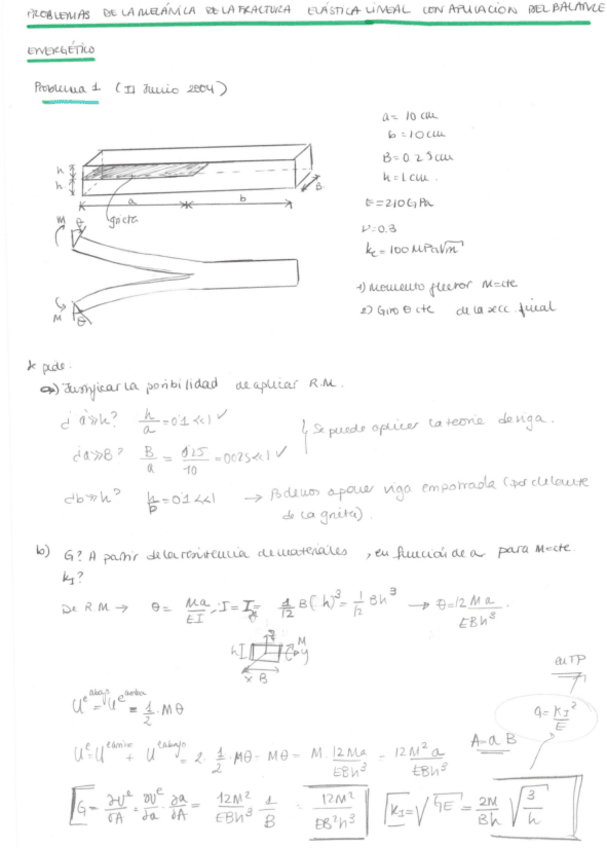 PROBLEMAS DE LA MECÁNICA DE LA FRACTURA ELÁSTICA LINEAL CON APLICACIÓN DEL BALANCE
ENERGÉTICO
Problema 1 (II Junio 2004)
a = 10 cm
b = 10 cm
B = 0.25 cm
h = 1 cm.
E = 210 GPa
ν = 0.3
kc = 100 MPa√m
1) Momento flector M=cte
2) Giro θ cte de la secc. final
h
h
a
b
B
grieta
M θ
M θ
Se pide.
a) Justificar la posibilidad de aplicar R.M.
¿a≫h? h/a = 0'1 ≪ 1 ✓
¿a≫B? B/a = 0'25/10 = 0'025 ≪ 1 ✓
Se puede aplicar la teoría de viga.
¿b≫h? h/b = 0'1 ≪ 1 → Podemos aponer viga empotrada (por delante
de la grieta).
b) G? A partir de la resistencia de materiales, en función de a para M=cte.
KI?
De R.M → θ = Ma/EI ; I = Iy = 1/12 B(h)³ = 1/12 Bh³ → θ = 12 Ma/EBh³.
h B x y z M
Uᵉ ᵃᵇᵃʲᵒ = Uᵉ ᵃʳʳⁱᵇᵃ = 1/2 · Mθ
en TP
G = KI²/E
A = a B
Uᵉ = Uᵉ ᵃʳʳⁱᵇᵃ + Uᵉ ᵃᵇᵃʲᵒ = 2 · 1/2 · Mθ = Mθ = M · 12Ma/EBh³ = 12M²a/EBh³
G = ∂Uᵉ/∂A = ∂Uᵉ/∂a · ∂a/∂A = 12M²/EBh³ · 1/B = 12M²/EB²h³
KI = √GE = 2M/Bh √3/h